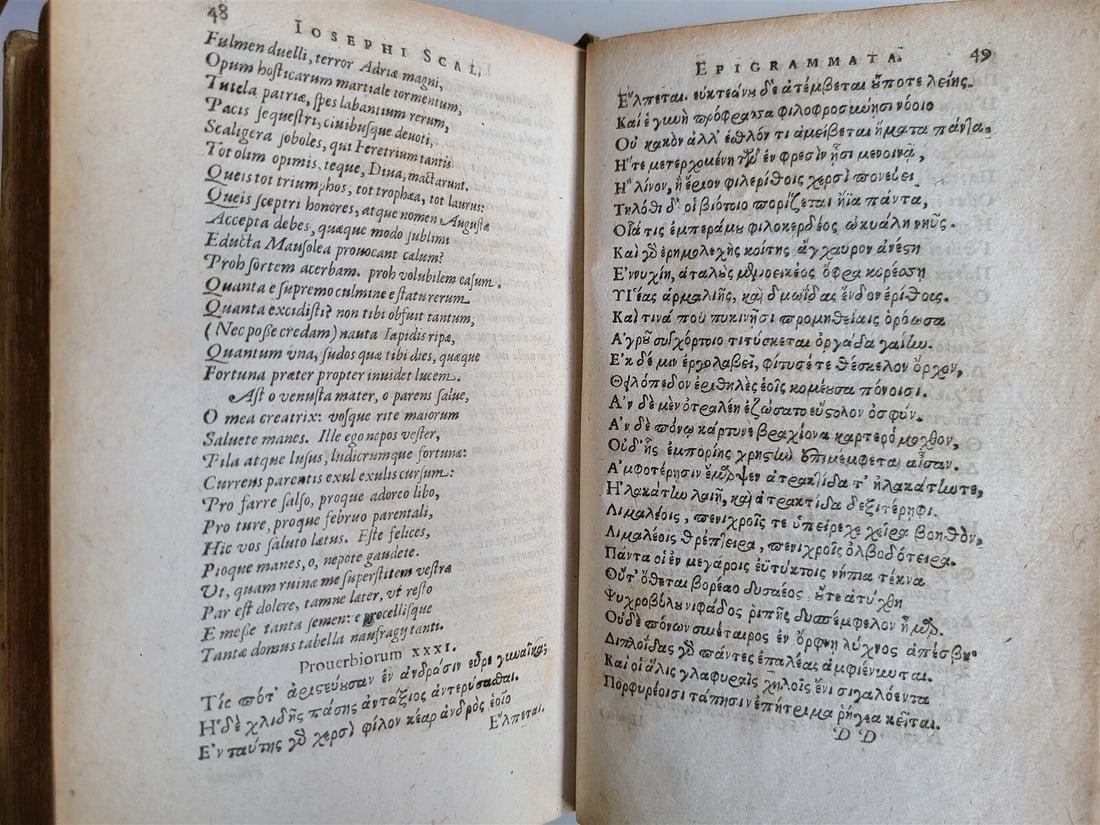 48
IOSEPHI SCAL.
Fulmen duelli, terror Adriæ magni,
Opum hosticarum martiale tormentum,
Tutela patriæ, spes labantium rerum,
Pacis sequestri, civibusque devoti,
Scaligera soboles, qui Feretrium tantis
Tot olim opimis, teque, Diva, mactarunt.
Queis tot triumphos, tot trophæa, tot laurus:
Queis sceptri honores, atque nomen Augustæ
Accepta debes, quæque modo sublimi
Educta Mausolea provocant cælum?
Proh sortem acerbam. proh volubilem casum.
Quanta e supremo culmine e statu rerum
Quanta excidisti? non tibi obfuit tantum,
(Nec posse credam) nauta Iapidis ripæ,
Quantum vna, sudos quæ tibi dies, quæque
Fortuna præter propter inuidet lucem.
Ast o venusta mater, o parens salue,
O mea creatrix: vosque rite maiorum
Saluete manes. Ille ego nepos vester,
Pila atque lusus, ludicrumque fortunæ:
Currens parentis exul exulis cursum:
Pro farre salso, proque adoreo libo,
Pro ture, proque februo parentali,
Hic vos saluto lætus. Este felices,
Pioque manes, o, nepote gaudete.
Vt, quam ruinæ me superstitem vestræ
Par est dolere, tamne læter, vt resto
E messe tanta semen: e procellisque
Tantæ domus tabella naufragij tanti.
Prouerbiorum XXXI.
Τίς πότ' ἀριστεύουσαν ἐν ἀνδράσιν εὗρε γυναῖκα;
Ἡ δὲ χλιδῆς πάσης ἀντάξιος ἀντερύσασθαι.
Ἐν ταύτης γὸ χερσὶ φίλον κέαρ ἀνδρὸς ἑοῖο
Ἔλπεται.
EPIGRAMMATA.
49
Ἔλπεται. εὐκτεάνων δὲ ἀτέμβεται οὔποτε λείης.
Καὶ ἑ γυνὴ πρόφρασσα φιλοφροσύνῃσι νόοιο
Οὐ κακὸν ἀλλ' ἐσθλόν τι ἀμείβεται ἤματα πάντα.
Ἥτε μετερχομένη τῷ ἐν φρεσὶν ᾗσι μενοινᾷ,
Ἢ λίνον, ἢ ἔριον φιλερίθοις χερσὶ πονεύει
Τηλόθι δ' οἱ βιότοιο πορίζεται ἤϊα πάντα,
Οἷά τις ἐμπεράμου φιλοκερδέος ὠκυάλη νηῦς.
Καὶ γὸ ἐρημολεχὴς κοίτης ἄγχαυρον ἀνέστη
Ἐννυχίη, ἀταλοὺς ὄφρα κορέσση
Υἱέας ἁρμαλιῆς, καὶ δμωΐδας ἔνδον ἐρίθοις.
Καὶ τινά που πυκινῇσι προμηθείαις ὁρόωσα
Ἀγροῦ συγχόρτοιο τιτύσκεται ὀργάδα γαίην.
Ἐκ δέ μιν ἐργολαβεῖ, φιτύσετε θέσκελον ὄρχον,
Θειλόπεδον ἐριθηλὲς ἑοῖς κομέουσα πόνοισι.
Ἂν δὲ μένος ἐζώσατο εὔστολον ὀσφύν.
Ἂν δὲ πόνῳ κάρτυνε βραχίονα καρτερόμοχθον,
Οὐδ' ἧς ἐμπορίης χρηστὴν ἐπιμέμφεται αἶσαν.
Ἀμφοτέρῃσιν ἔμαρψεν ἀτρακτίδα τ' ἠλακάτην τε,
Ἠλακάτην λαιῇ, καὶ ἀτρακτίδα δεξιτέρηφι.
Λιμαλέοις, πενιχροῖς τε ὑπείρεχε χεῖρα βοηθόν,
Λιμαλέοις θρέπτειρα, πενιχροῖς ὀλβοδότειρα.
Πάντα οἱ ἐν μεγάροις ἐϋτύκτοις νήπια τέκνα
Οὔτ' ὄθεται βορέαο δυσαέος, οὔτε ἀτύχθη
Ψυχροβόλου νιφάδος ῥιπῆς δυσπέμφελον ἦμαρ.
Οὐδὲ πόνων συνέταιρος ἐν ὄρφνῃ λύχνος ἀπέσβη.
Διπλοΐδας γὸ πάντες ἐπαλέας ἀμφιέννυνται.
Καὶ οἱ ἅλις γλαφυραῖς χηλοῖς ἔνι σιγαλόεντα
Πορφυρέοισι τάπησιν ἐπήτριμα ῥήγεα κεῖται.
DD